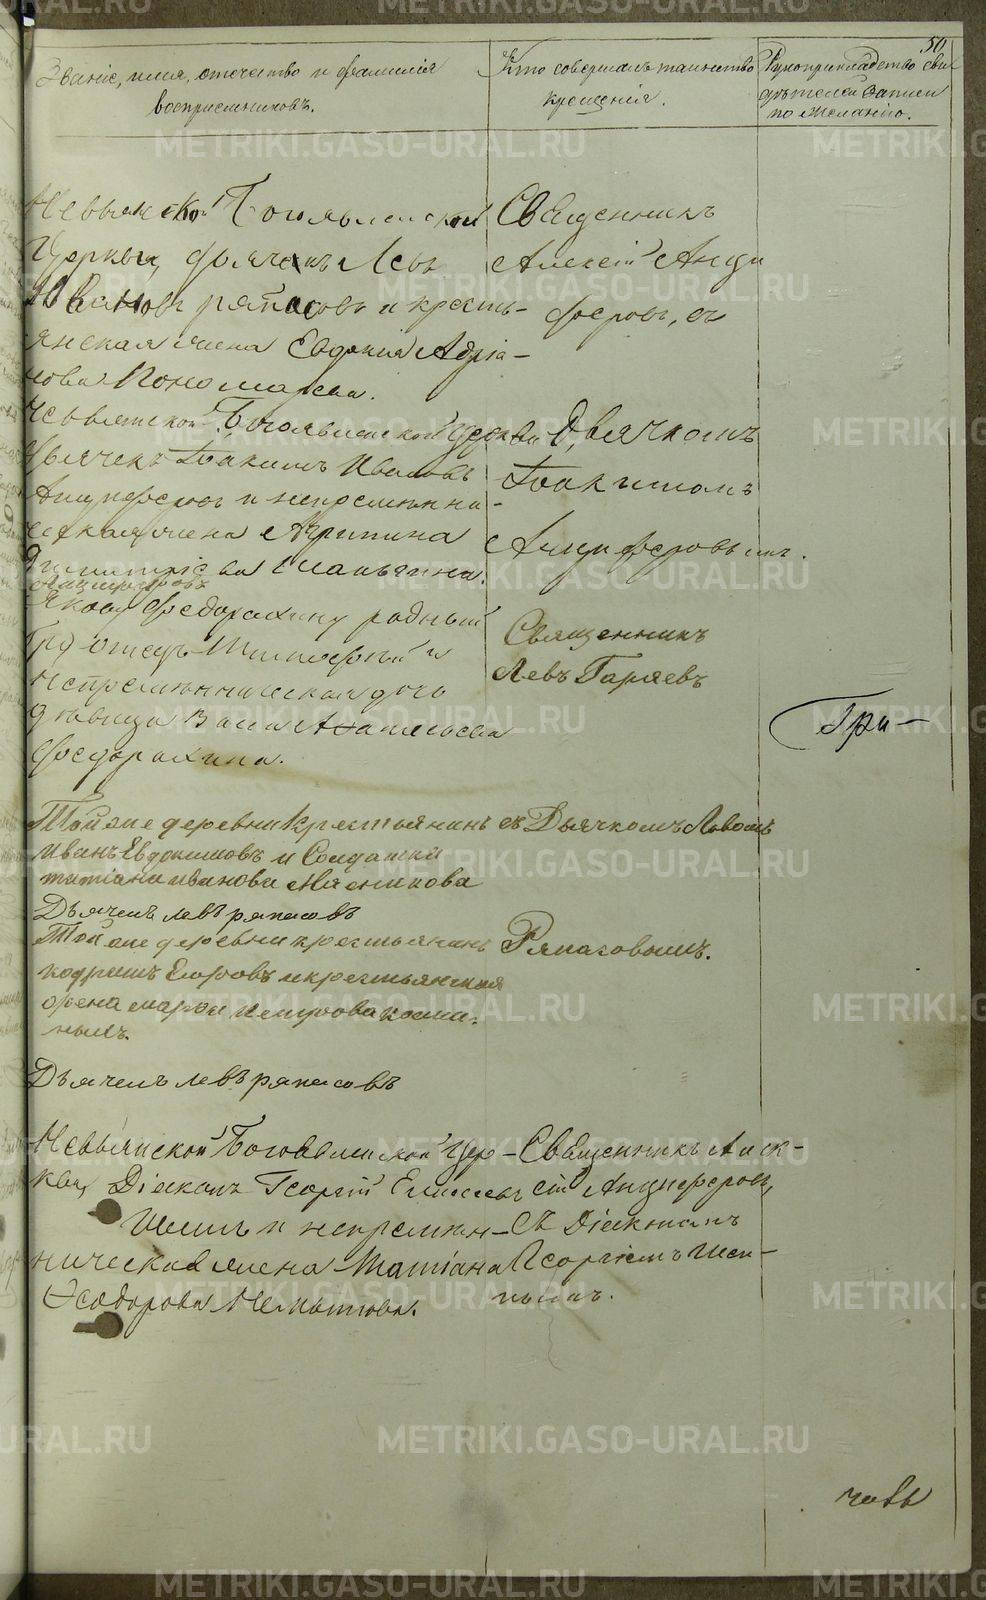 50
Званіе, имя, отечество и фамилія
воспріемниковъ.
Кто совершалъ таинство
крещенія.
Рукоприкладство сви
дѣтелей записи
по желанію.
Невьянской Богоявленской
Церкви, дьячекъ Левъ
Ивановъ Ряпасовъ и кресть-
янская жена Евдокия Адріа-
нова Пономарева.
Священникъ
Алексій Анци
феровъ, съ
Невьянской Богоявленской церкви
дьячекъ Іоакимъ Ивановъ
Анцыферовъ и непремѣнни-
ческая жена Агрипина
Димитріева
Дьячкомъ
Іоакимомъ
Анциферовымъ.
Анциферовъ
Якову Федорахину родный
отецъ Тимофей и
непремѣнническая дочь
дѣвица
Федорахина.
Священникъ
Левъ Гаряевъ
Гри-
Той же деревни Крестьянинъ
Иванъ Евдокимовъ и Солдатка
татіана иванова Мясникова
Дьячекъ левъ ряпасовъ
съ Дьячкомъ Львомъ
Той же деревни крестьянинъ
Егоровъ и крестьянская
жена марѳа петрова
Ряпасовымъ.
Дьячекъ левъ ряпасовъ
Невьянской Богоявленской цер-
кви, Діаконъ Георгій Елисеевъ
Шешинъ и непремѣн-
ническая жена Татіана
Ѳеодорова
Священникъ Алек-
сій Анциферовъ,
Съ Діакономъ
Георгіемъ Шеши-
нымъ.
часть
METRIKI.GASO-URAL.RU